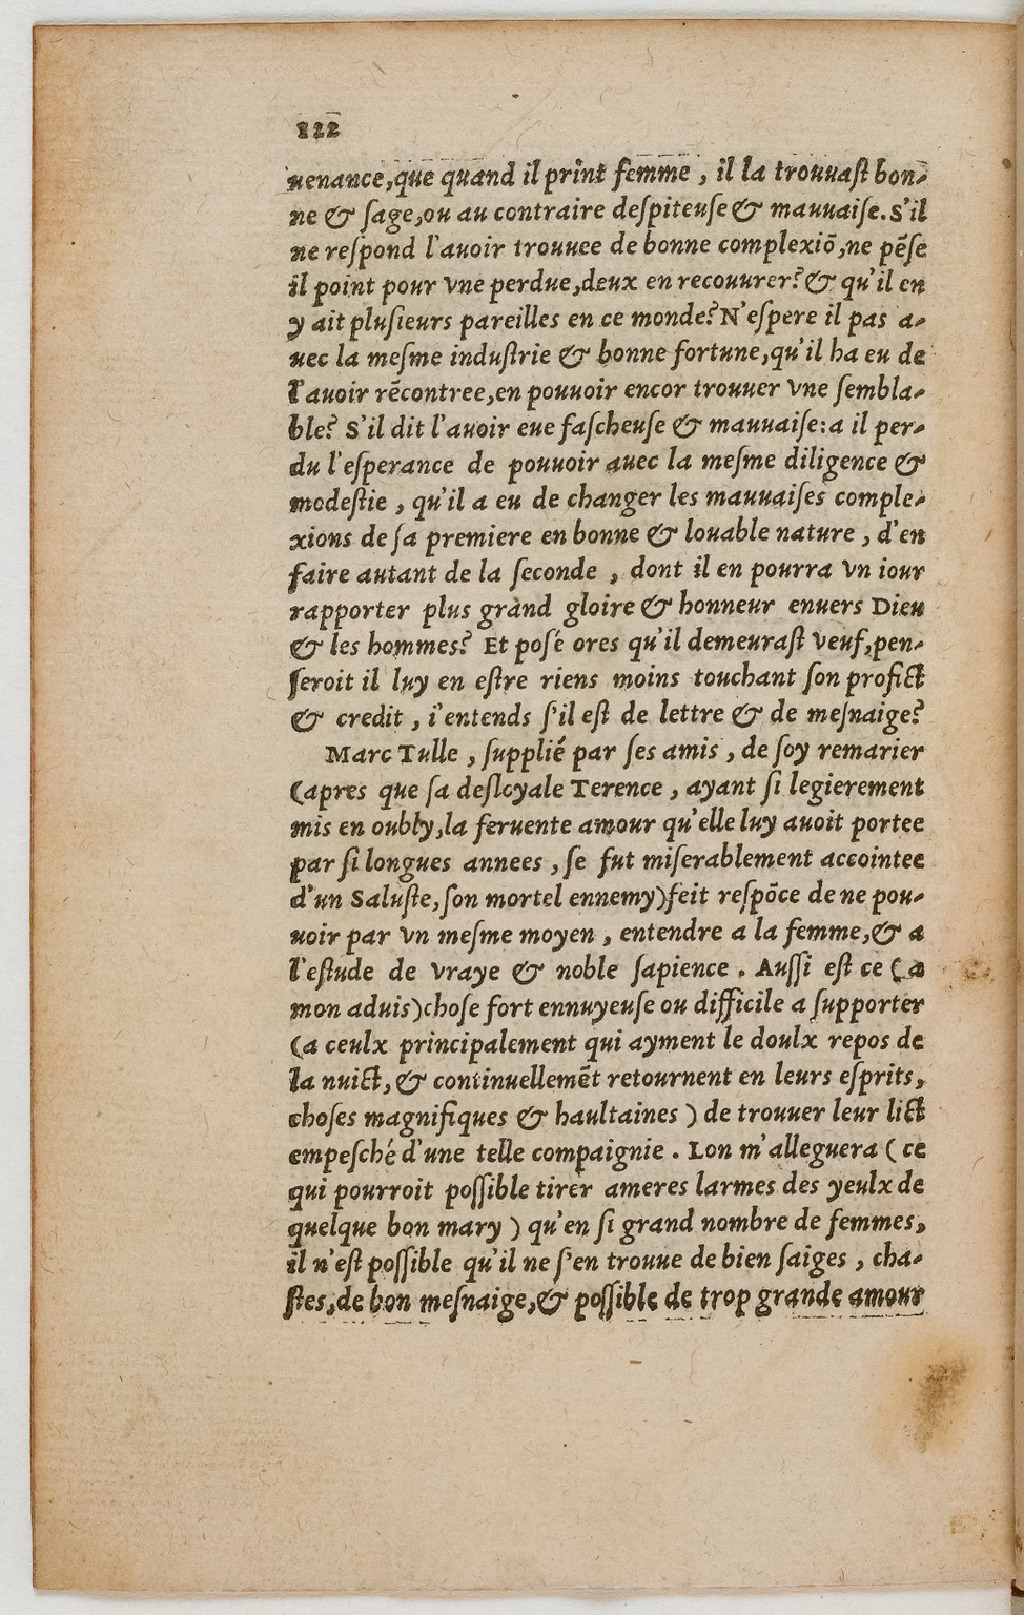 112
uenance,que quand il print femme , il la trouuaſt bon-
ne & ſage,ou au contraire deſpiteuſe & mauuaiſe. S'il
ne reſpond l'auoir trouuee de bonne complexiõ,ne pẽſe
il point pour vne perdue,deux en recouurer? & qu'il en
y ait pluſieurs pareilles en ce monde? N'eſpere il pas a-
uec la meſme induſtrie & bonne fortune,qu'il ha eu de
l'auoir rẽcontree,en pouuoir encor trouuer vne ſembla-
ble? S'il dit l'auoir eue faſcheuſe & mauuaiſe:a il per-
du l'eſperance de pouuoir auec la meſme diligence &
modeſtie , qu'il a eu de changer les mauuaiſes comple-
xions de ſa premiere en bonne & louable nature , d'en
faire autant de la ſeconde , dont il en pourra vn iour
rapporter plus grand gloire & honneur enuers Dieu
& les hommes? Et poſé ores qu'il demeuraſt veuf,pen-
ſeroit il luy en eſtre riens moins touchant ſon profict
& credit , i'entends ſ'il eſt de lettre & de meſnaige?
Marc Tulle , ſupplié par ſes amis , de ſoy remarier
(apres que ſa desloyale Terence , ayant ſi legierement
mis en oubly,la feruente amour qu'elle luy auoit portee
par ſi longues annees , ſe fut miſerablement accointee
d'un Saluſte,ſon mortel ennemy)feit reſpõce de ne pou-
uoir par vn meſme moyen , entendre a la femme,& a
l'eſtude de vraye & noble ſapience . Auſſi eſt ce (a
mon aduis)choſe fort ennuyeuſe ou difficile a ſupporter
(a ceulx principalement qui ayment le doulx repos de
la nuict,& continuellemẽt retournent en leurs eſprits,
choſes magnifiques & haultaines ) de trouuer leur lict
empeſché d'une telle compaignie . Lon m'alleguera ( ce
qui pourroit poſſible tirer ameres larmes des yeulx de
quelque bon mary ) qu'en ſi grand nombre de femmes,
il n'eſt poſſible qu'il ne ſ'en trouue de bien ſaiges , cha-
ſtes,de bon meſnaige,& poſſible de trop grande amour